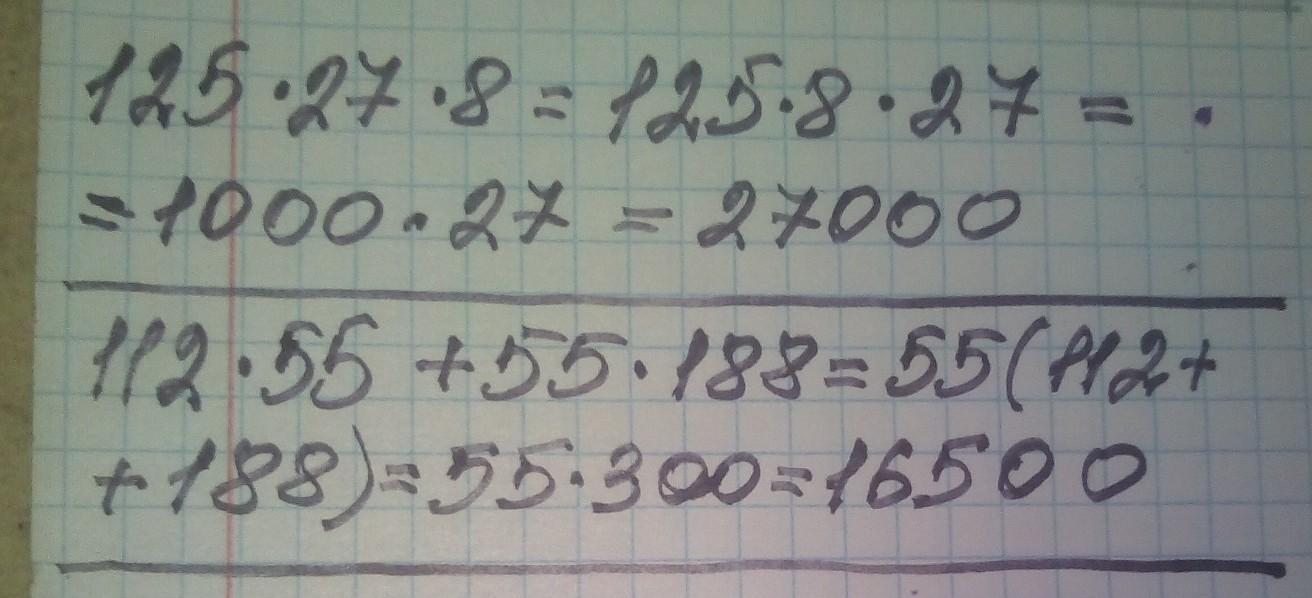 125·27·8=125·8·27=
=1000·27=27000
112·55+55·188=55(112+
+188)=55·300=16500